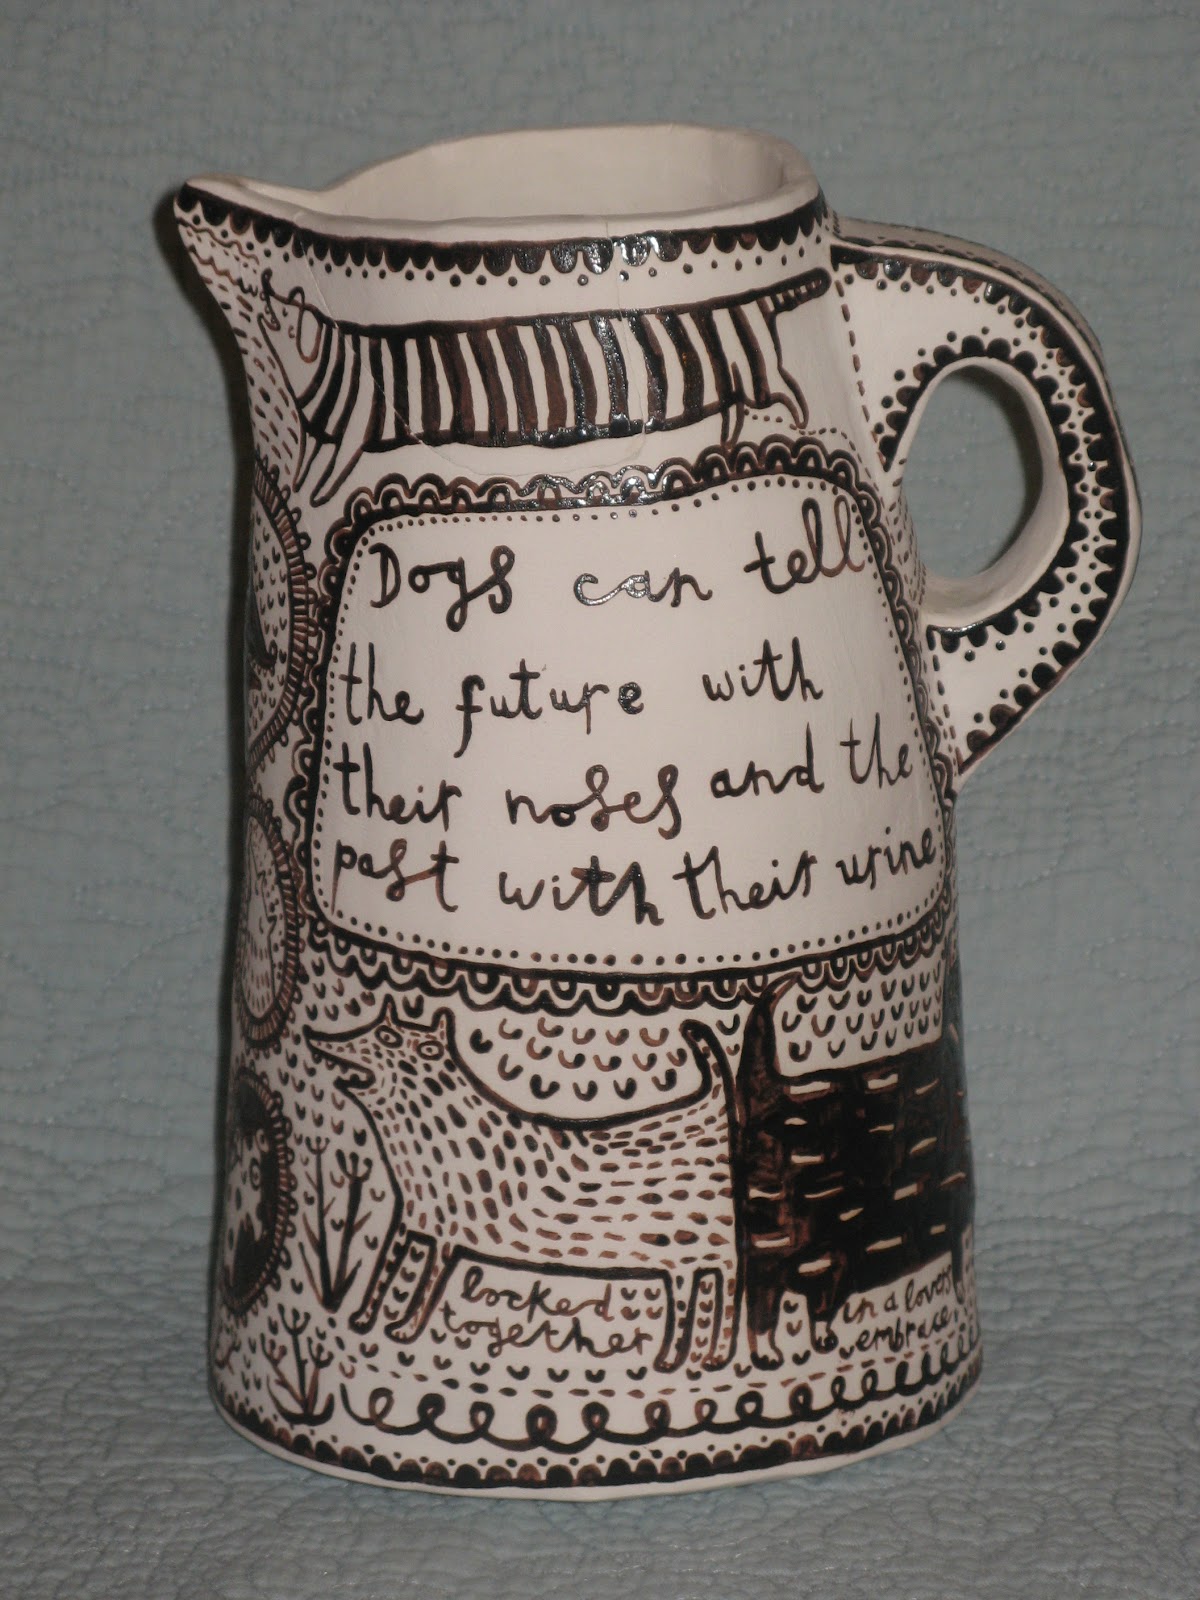 Dogs can tell
the future with
their noses and the
past with their urine
locked
together
in a lovers
embrace.